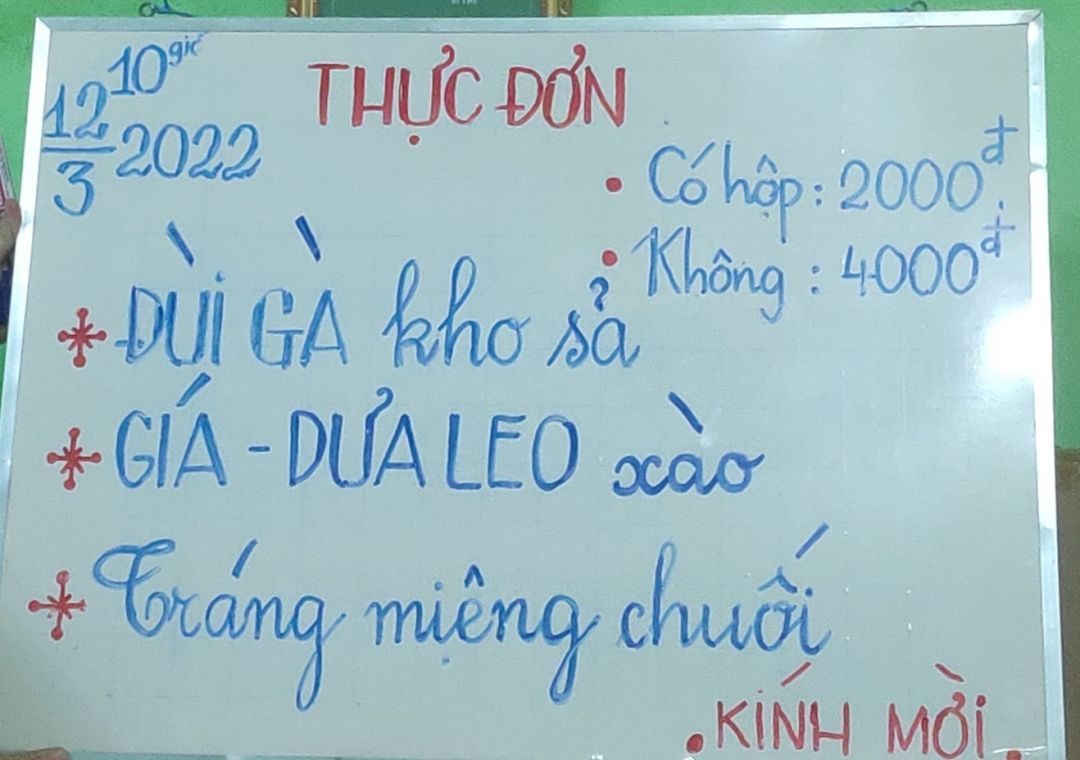 10 giờ
12/3 2022
THỰC ĐƠN
• Có hộp: 2000đ.
• Không: 4000đ
* ĐÙI GÀ kho sả
* GIÁ - DƯA LEO xào
* Tráng miệng chuối
• KÍNH MỜI.